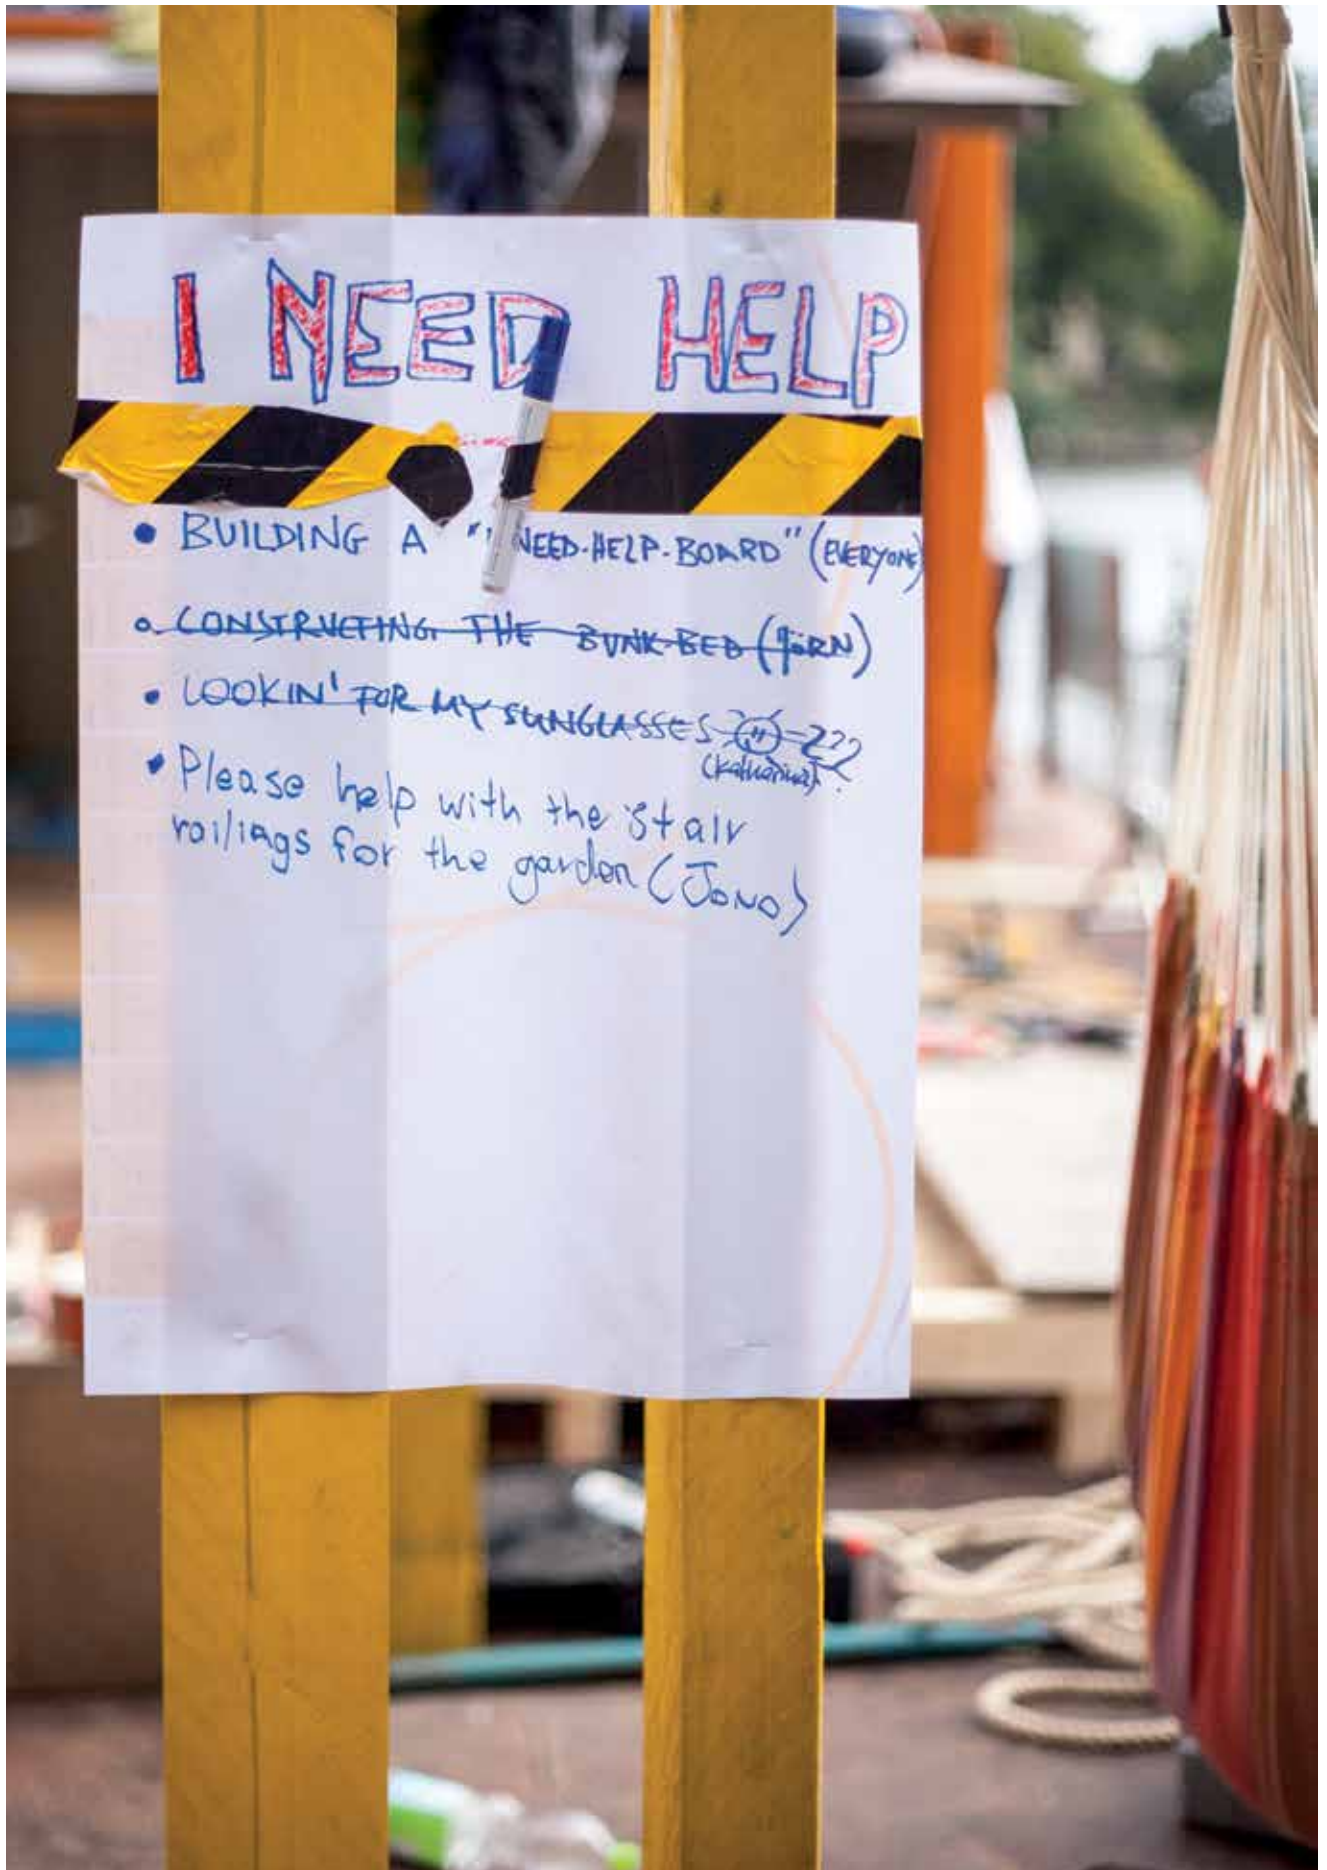 I NEED HELP
• BUILDING A "I NEED-HELP-BOARD" (EVERYONE)
• CONSTRUCTING THE BUNK-BED (JÖRN)
• LOOKIN' FOR MY SUNGLASSES ???
(Katharina)
• Please help with the stair
railings for the garden (JONO)